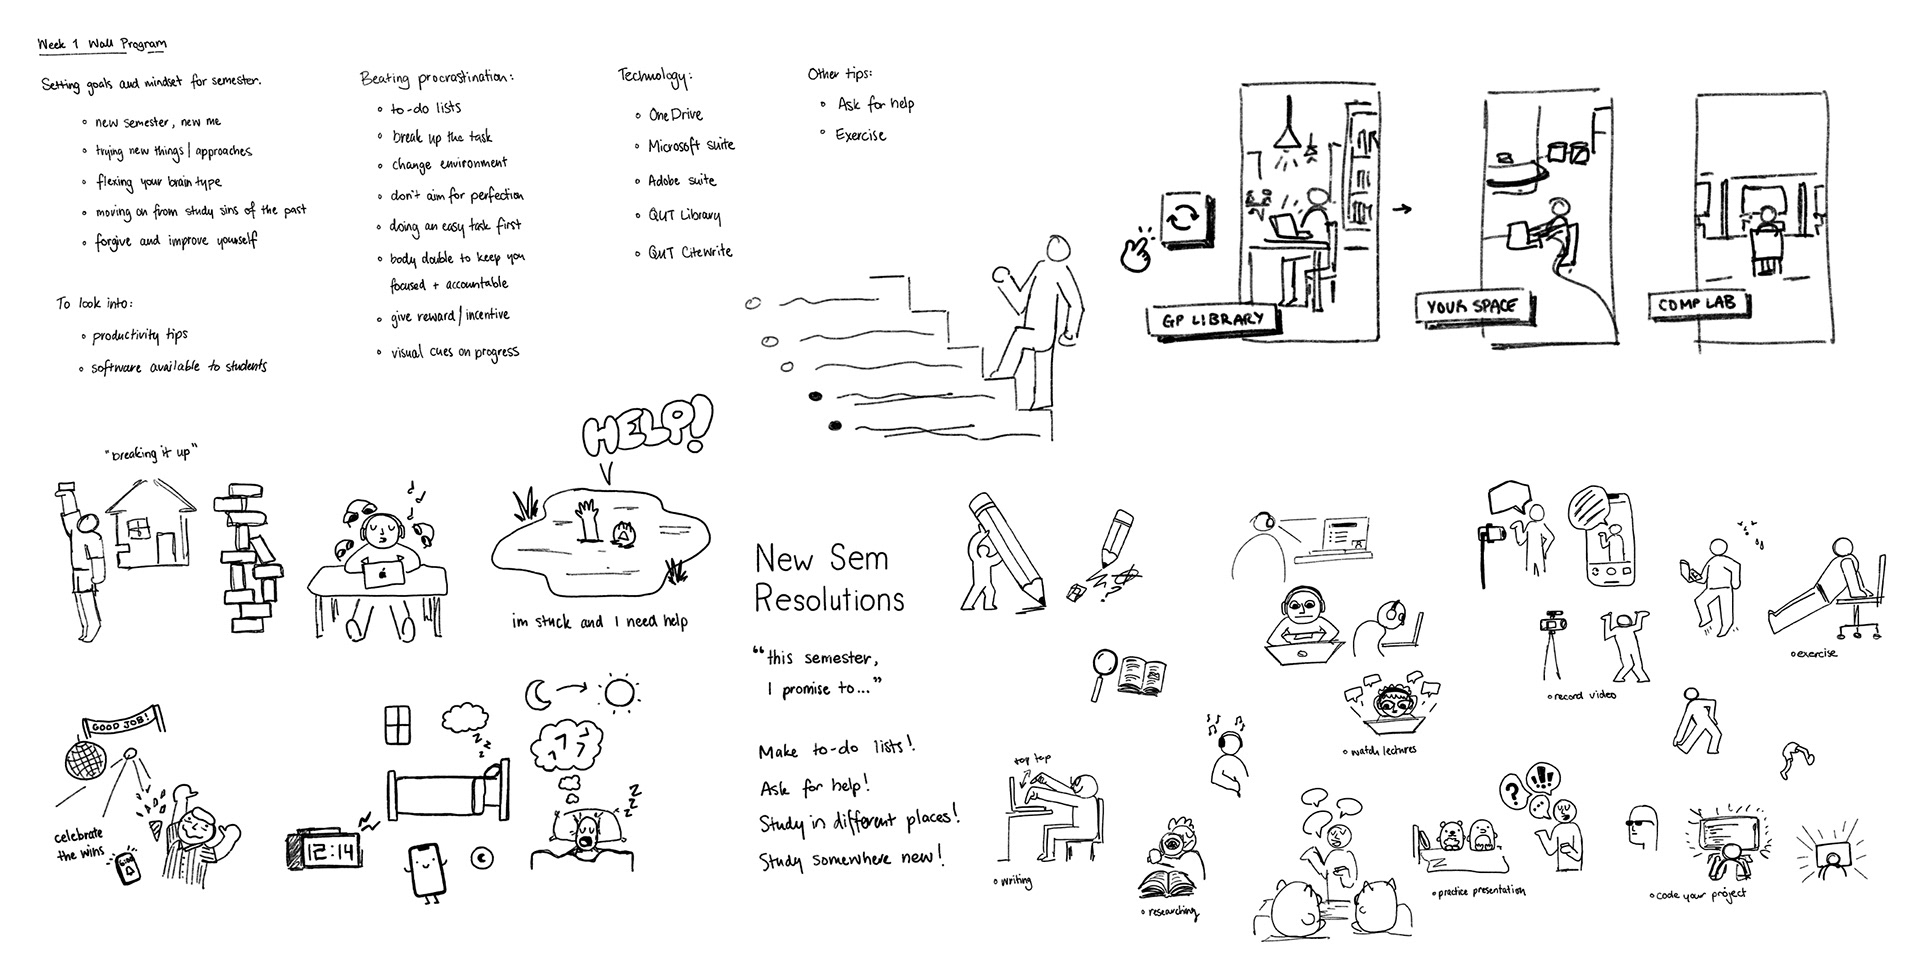 Week 1 Wall Program
Setting goals and mindset for semester.
new semester, new me
trying new things / approaches
flexing your brain type
moving on from study sins of the past
forgive and improve yourself
To look into:
productivity tips
software available to students
Beating procrastination:
to-do lists
break up the task
change environment
don't aim for perfection
doing an easy task first
body double to keep you
focused + accountable
give reward / incentive
visual cues on progress
Technology:
OneDrive
Microsoft suite
Adobe suite
QUT Library
QUT Citewrite
Other tips:
Ask for help
Exercise
GP LIBRARY
YOUR SPACE
COMP LAB
"breaking it up"
HELP!
im stuck and I need help
GOOD JOB!
celebrate
the wins
12:14
New Sem
Resolutions
"this semester,
I promise to..."
Make to-do lists!
Ask for help!
Study in different places!
Study somewhere new!
tap tap
writing
researching
watch lectures
record video
exercise
? ... !!!
practice presentation
code your project